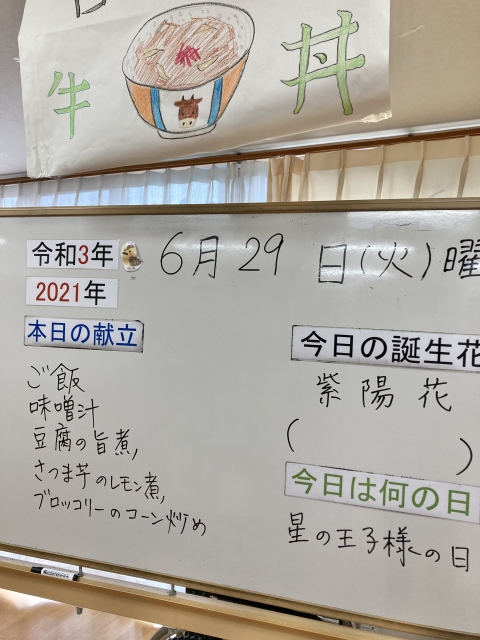 牛
丼
令和3年
6月29日(火)曜
2021年
本日の献立
ご飯
味噌汁
豆腐の旨煮
さつま芋のレモン煮
ブロッコリーのコーン炒め
今日の誕生花
紫陽花
(　　　)
今日は何の日
星の王子様の日